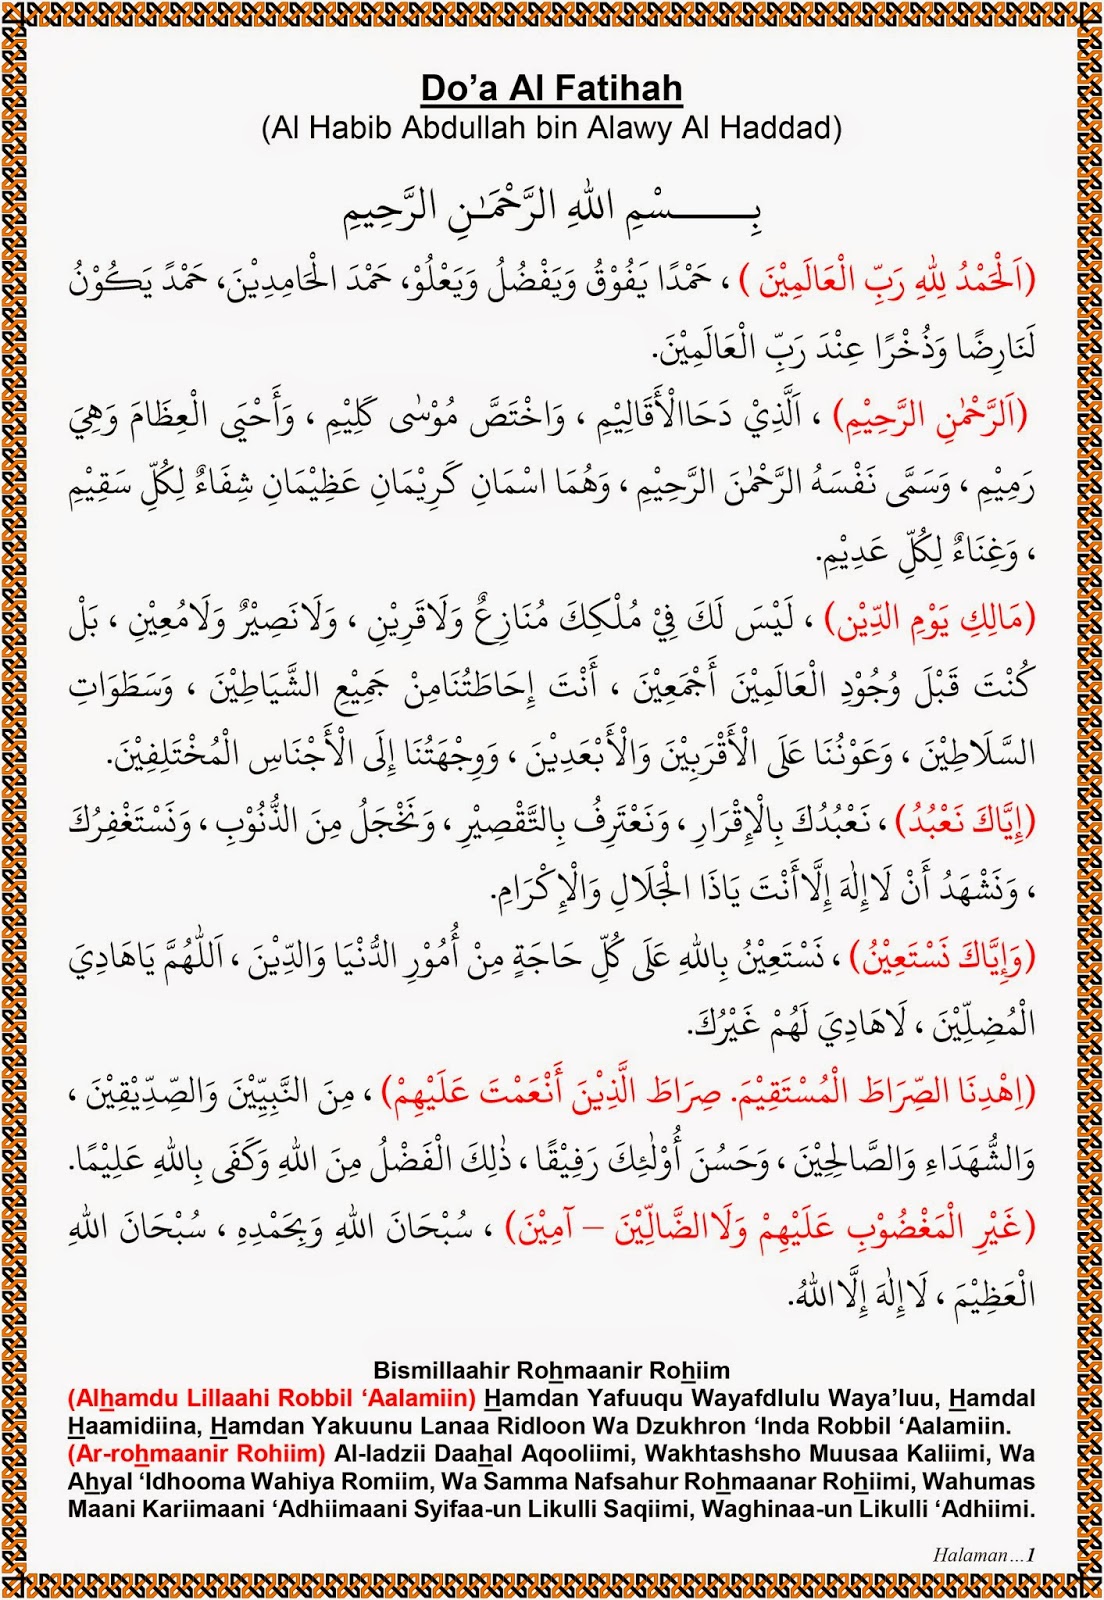 Do'a Al Fatihah
(Al Habib Abdullah bin Alawy Al Haddad)
بِـــــــسْمِ اللهِ الرَّحْمَـٰنِ الرَّحِيمِ
(اَلْحَمْدُ لِلّٰهِ رَبِّ الْعَالَمِيْنَ ) ، حَمْدًا يَفُوْقُ وَيَفْضُلُ وَيَعْلُوْ، حَمْدَ الْحَامِدِيْنَ، حَمْدً يَكُوْنُ
لَنَارِضًا وَذُخْرًا عِنْدَ رَبِّ الْعَالَمِيْنَ.
(اَلرَّحْمٰنِ الرَّحِيْمِ) ، اَلَّذِيْ دَحَاالْأَقَالِيْمِ ، وَاخْتَصَّ مُوْسٰى كَلِيْمِ ، وَأَحْيَى الْعِظَامَ وَهِيَ
رَمِيْمِ ، وَسَمَّى نَفْسَهُ الرَّحْمٰنَ الرَّحِيْمِ ، وَهُمَا اسْمَانِ كَرِيْمَانِ عَظِيْمَانِ شِفَاءٌ لِكُلِّ سَقِيْمِ
، وَغِنَاءٌ لِكُلِّ عَدِيْمِ.
(مَالِكِ يَوْمِ الدِّيْن) ، لَيْسَ لَكَ فِيْ مُلْكِكَ مُنَازِعٌ وَلَاقَرِيْنِ ، وَلَانَصِيْرٌ وَلَامُعِيْنِ ، بَلْ
كُنْتَ قَبْلَ وُجُوْدِ الْعَالَمِيْنَ أَجْمَعِيْنَ ، أَنْتَ إِحَاطَتُنَامِنْ جَمِيْعِ الشَّيَاطِيْنَ ، وَسَطَوَاتِ
السَّلَاطِيْنَ ، وَعَوْنُنَا عَلَى الْأَقْرَبِيْنَ وَالْأَبْعَدِيْنَ ، وَوِجْهَتُنَا إِلَى الْأَجْنَاسِ الْمُخْتَلِفِيْنَ.
(إِيَّاكَ نَعْبُدُ) ، نَعْبُدُكَ بِالْإِقْرَارِ ، وَنَعْتَرِفُ بِالتَّقْصِيْرِ ، وَنَخْجَلُ مِنَ الذُّنُوْبِ ، وَنَسْتَغْفِرُكَ
، وَنَشْهَدُ أَنْ لَاإِلٰهَ إِلَّاأَنْتَ يَاذَا الْجَلَالِ وَالْإِكْرَامِ.
(وَإِيَّاكَ نَسْتَعِيْنُ) ، نَسْتَعِيْنُ بِاللهِ عَلَى كُلِّ حَاجَةٍ مِنْ أُمُوْرِ الدُّنْيَا وَالدِّيْنَ ، اَللّٰهُمَّ يَاهَادِيَ
الْمُضِلِّيْنَ ، لَاهَادِيَ لَهُمْ غَيْرُكَ.
(اِهْدِنَا الصِّرَاطَ الْمُسْتَقِيْمَ. صِرَاطَ الَّذِيْنَ أَنْعَمْتَ عَلَيْهِمْ) ، مِنَ النَّبِيِّيْنَ وَالصِّدِّيْقِيْنَ ،
وَالشُّهَدَاءِ وَالصَّالِحِيْنَ ، وَحَسُنَ أُوْلٰئِكَ رَفِيْقًا ، ذٰلِكَ الْفَضْلُ مِنَ اللهِ وَكَفَى بِاللهِ عَلِيْمًا.
(غَيْرِ الْمَغْضُوْبِ عَلَيْهِمْ وَلَاالضَّالِّيْنَ – آمِيْنَ) ، سُبْحَانَ اللهِ وَبِحَمْدِهِ ، سُبْحَانَ اللهِ
الْعَظِيْمَ ، لَاإِلٰهَ إِلَّااللهُ.
Bismillaahir Rohmaanir Rohiim
(Alhamdu Lillaahi Robbil 'Aalamiin) Hamdan Yafuuqu Wayafdlulu Waya'luu, Hamdal
Haamidiina, Hamdan Yakuunu Lanaa Ridloon Wa Dzukhron 'Inda Robbil 'Aalamiin.
(Ar-rohmaanir Rohiim) Al-ladzii Daahal Aqooliimi, Wakhtashsho Muusaa Kaliimi, Wa
Ahyal 'Idhooma Wahiya Romiim, Wa Samma Nafsahur Rohmaanar Rohiimi, Wahumas
Maani Kariimaani 'Adhiimaani Syifaa-un Likulli Saqiimi, Waghinaa-un Likulli 'Adhiimi.
Halaman…1